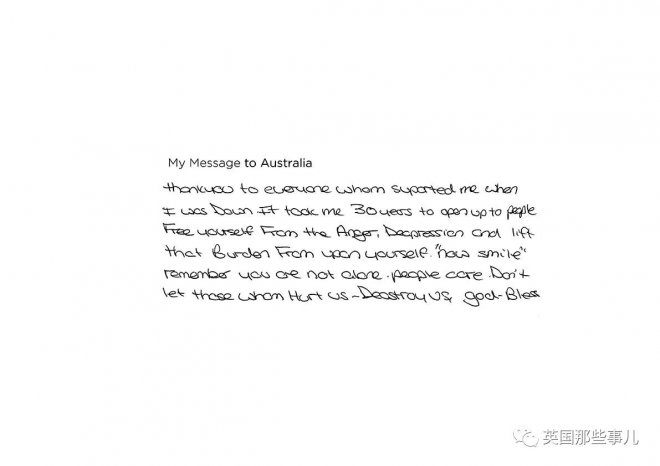 My Message to Australia
thankyou to everyone whom suported me when
I was Down It took me 30 years to open up to people
Free yourself From the Anger, Deapression and lift
that Burden From upon yourself. "now smile"
remember you are not alone. people care. Don't
let those whom Hurt us - Deastroy us, god-Bless
英国那些事儿